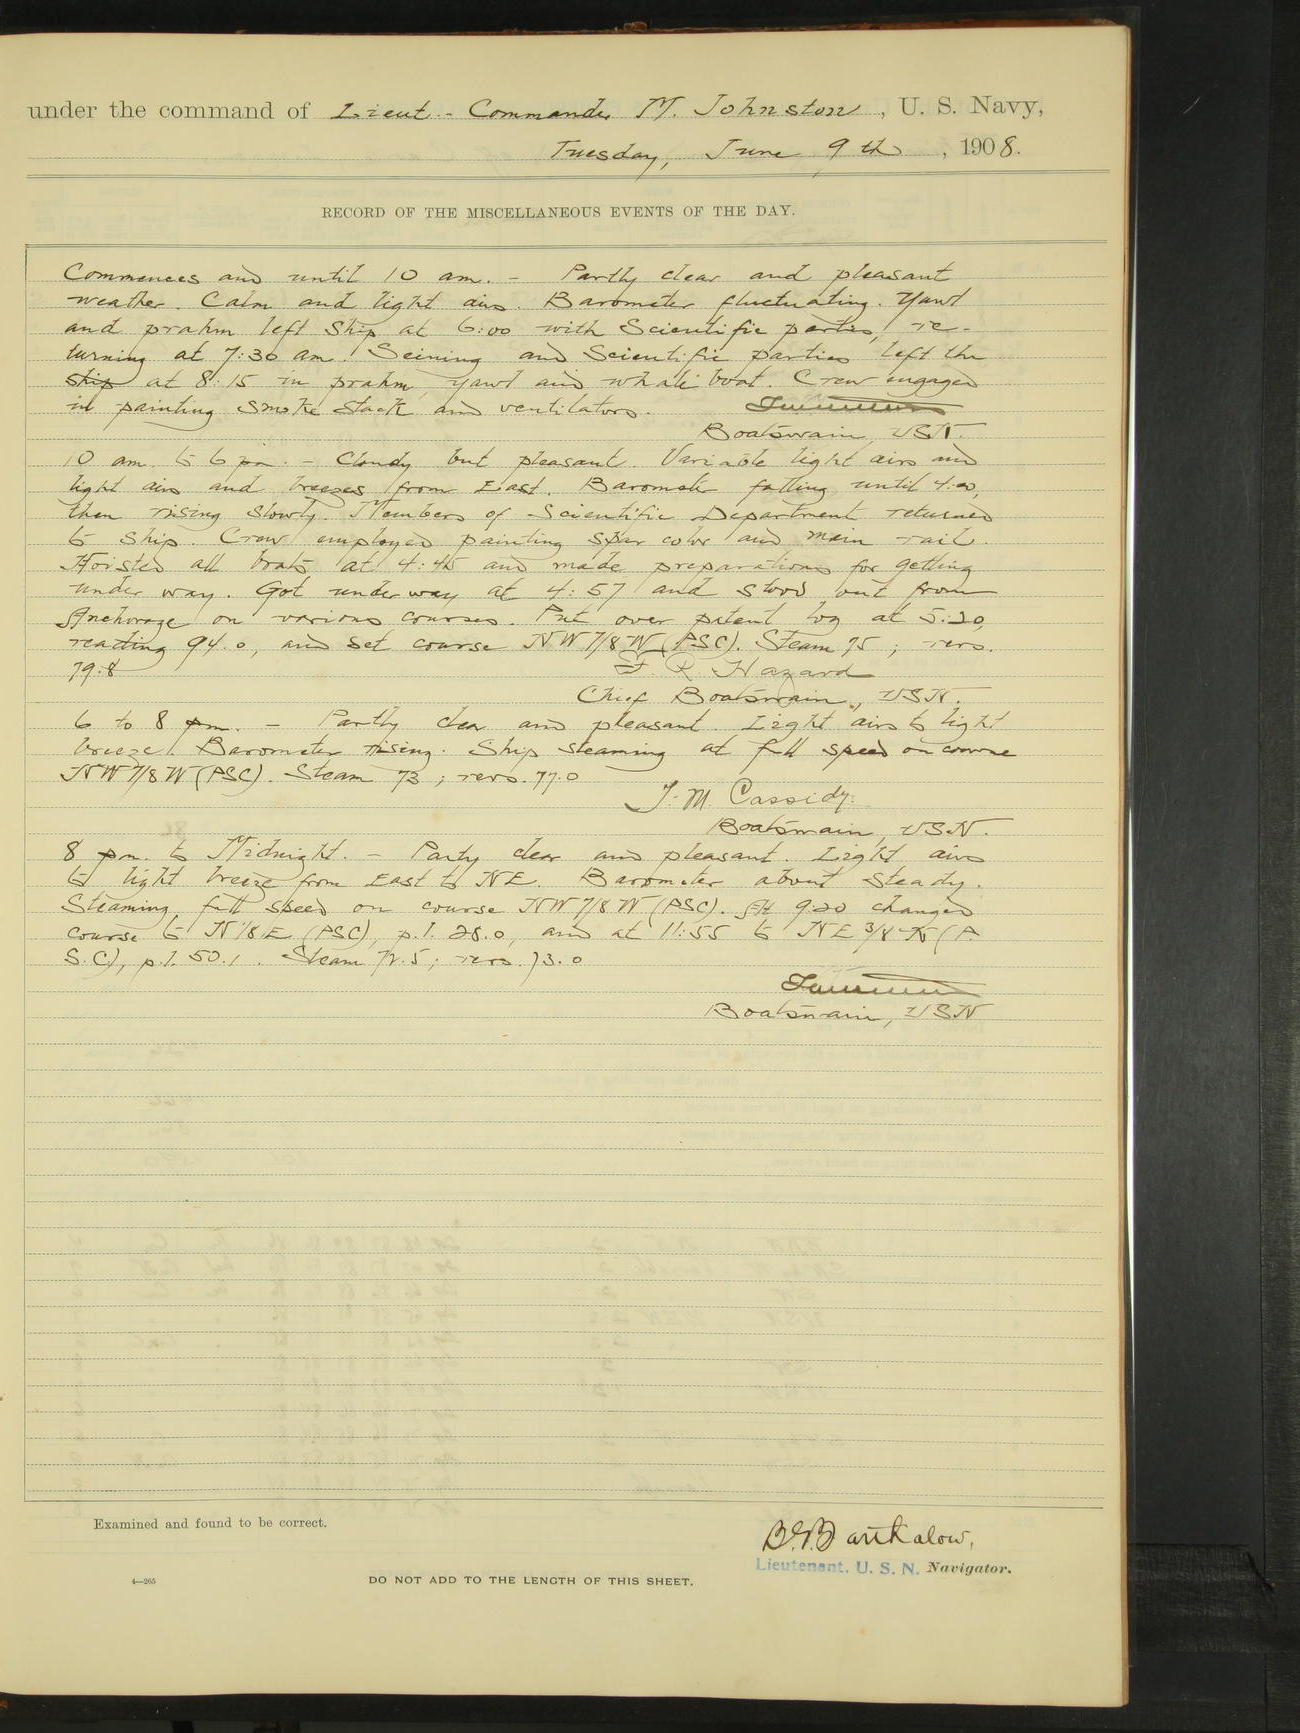 under the command of Lieut.-Commander M. Johnston, U. S. Navy,
Tuesday, June 9th, 1908.
RECORD OF THE MISCELLANEOUS EVENTS OF THE DAY.
Commences and until 10 am. - Partly clear and pleasant
weather. Calm and light airs. Barometer fluctuating. Yawl
and prahm left ship at 6:00 with Scientific parties, re-
turning at 7:30 am. Seining and Scientific parties left the
ship at 8:15 in prahm, yawl and whale boat. Crew engaged
in painting smoke stack and ventilators.
Boatswain, USN.
10 am. to 6 pm. - Cloudy but pleasant. Variable light airs and
light airs and breezes from East. Barometer falling until 4:00,
then rising slowly. Members of Scientific Department returned
to ship. Crew employed painting spar color and main rail.
Hoisted all boats at 4:45 and made preparations for getting
under way. Got underway at 4:57 and stood out from
Anchorage on various courses. Put over patent log at 5:20,
reading 94.0, and set course NW 7/8 W (PSC). Steam 75; revs.
79.8
F. R. Hazard
Chief Boatswain, USN.
6 to 8 pm. - Partly clear and pleasant. Light airs to light
breeze. Barometer rising. Ship steaming at full speed on course
NW 7/8 W (PSC). Steam 73; revs. 77.0
J. M. Cassidy.
Boatswain, USN.
8 pm. to Midnight. - Party clear and pleasant. Light airs
to light breeze from East to NE. Barometer about steady.
Steaming full speed on course NW 7/8 W (PSC). At 9:20 changed
course to N 1/8 E (PSC), p.l. 28.0, and at 11:55 to NE 3/8 N (P
S.C), p.l. 50.1. Steam 72.5; revs. 73.0
Boatswain, USN
Examined and found to be correct.
Lieutenant, U. S. N. Navigator.
4—265
DO NOT ADD TO THE LENGTH OF THIS SHEET.